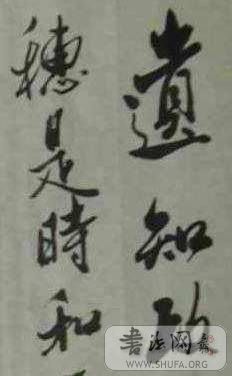 遺知
穗是時和
書法網
WWW.SHUFA.ORG